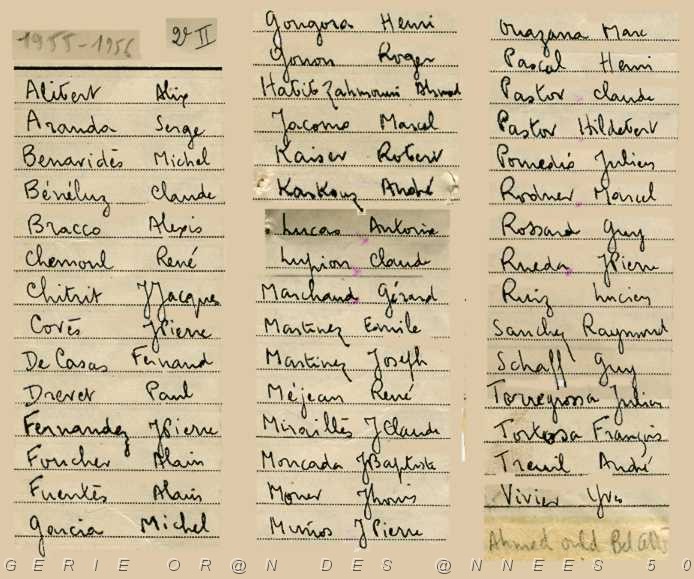 1955-1956 2e II
Alibert Alix
Aranda Serge
Benavidès Michel
Bénéluz Claude
Bracco Alexis
Chemoul René
Chitrit JJacques
Covès JPierre
De Casas Fernand
Drevet Paul
Fernandez JPierre
Foucher Alain
Fuentès Alain
Garcia Michel
Gongora Henri
Gonon Roger
Habib Zahmouni Ahmed
Jacomo Marcel
Kaiser Robert
Kaskouz André
Lucas Antoine
Lupion Claude
Marchand Gérard
Martinez Emile
Martinez Joseph
Méjean René
Mirallès JClaude
Moncada JBaptiste
Moner
Munos JPierre
Ouazana Marc
Pascal Henri
Pastor Claude
Pastor Hildebert
Pomedio Julien
Rodner Marcel
Rossard Guy
Rueda JPierre
Ruiz Lucien
Sanchez Raymond
Schaff Guy
Torregrossa Julien
Tortosa François
Treuil André
Vivier Yves
Ahmed ould Bel
GERIE OR@N DES @NNEES 50